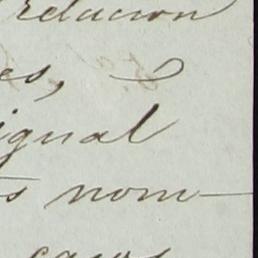 relacion
es, é
igual
s nom-
casos